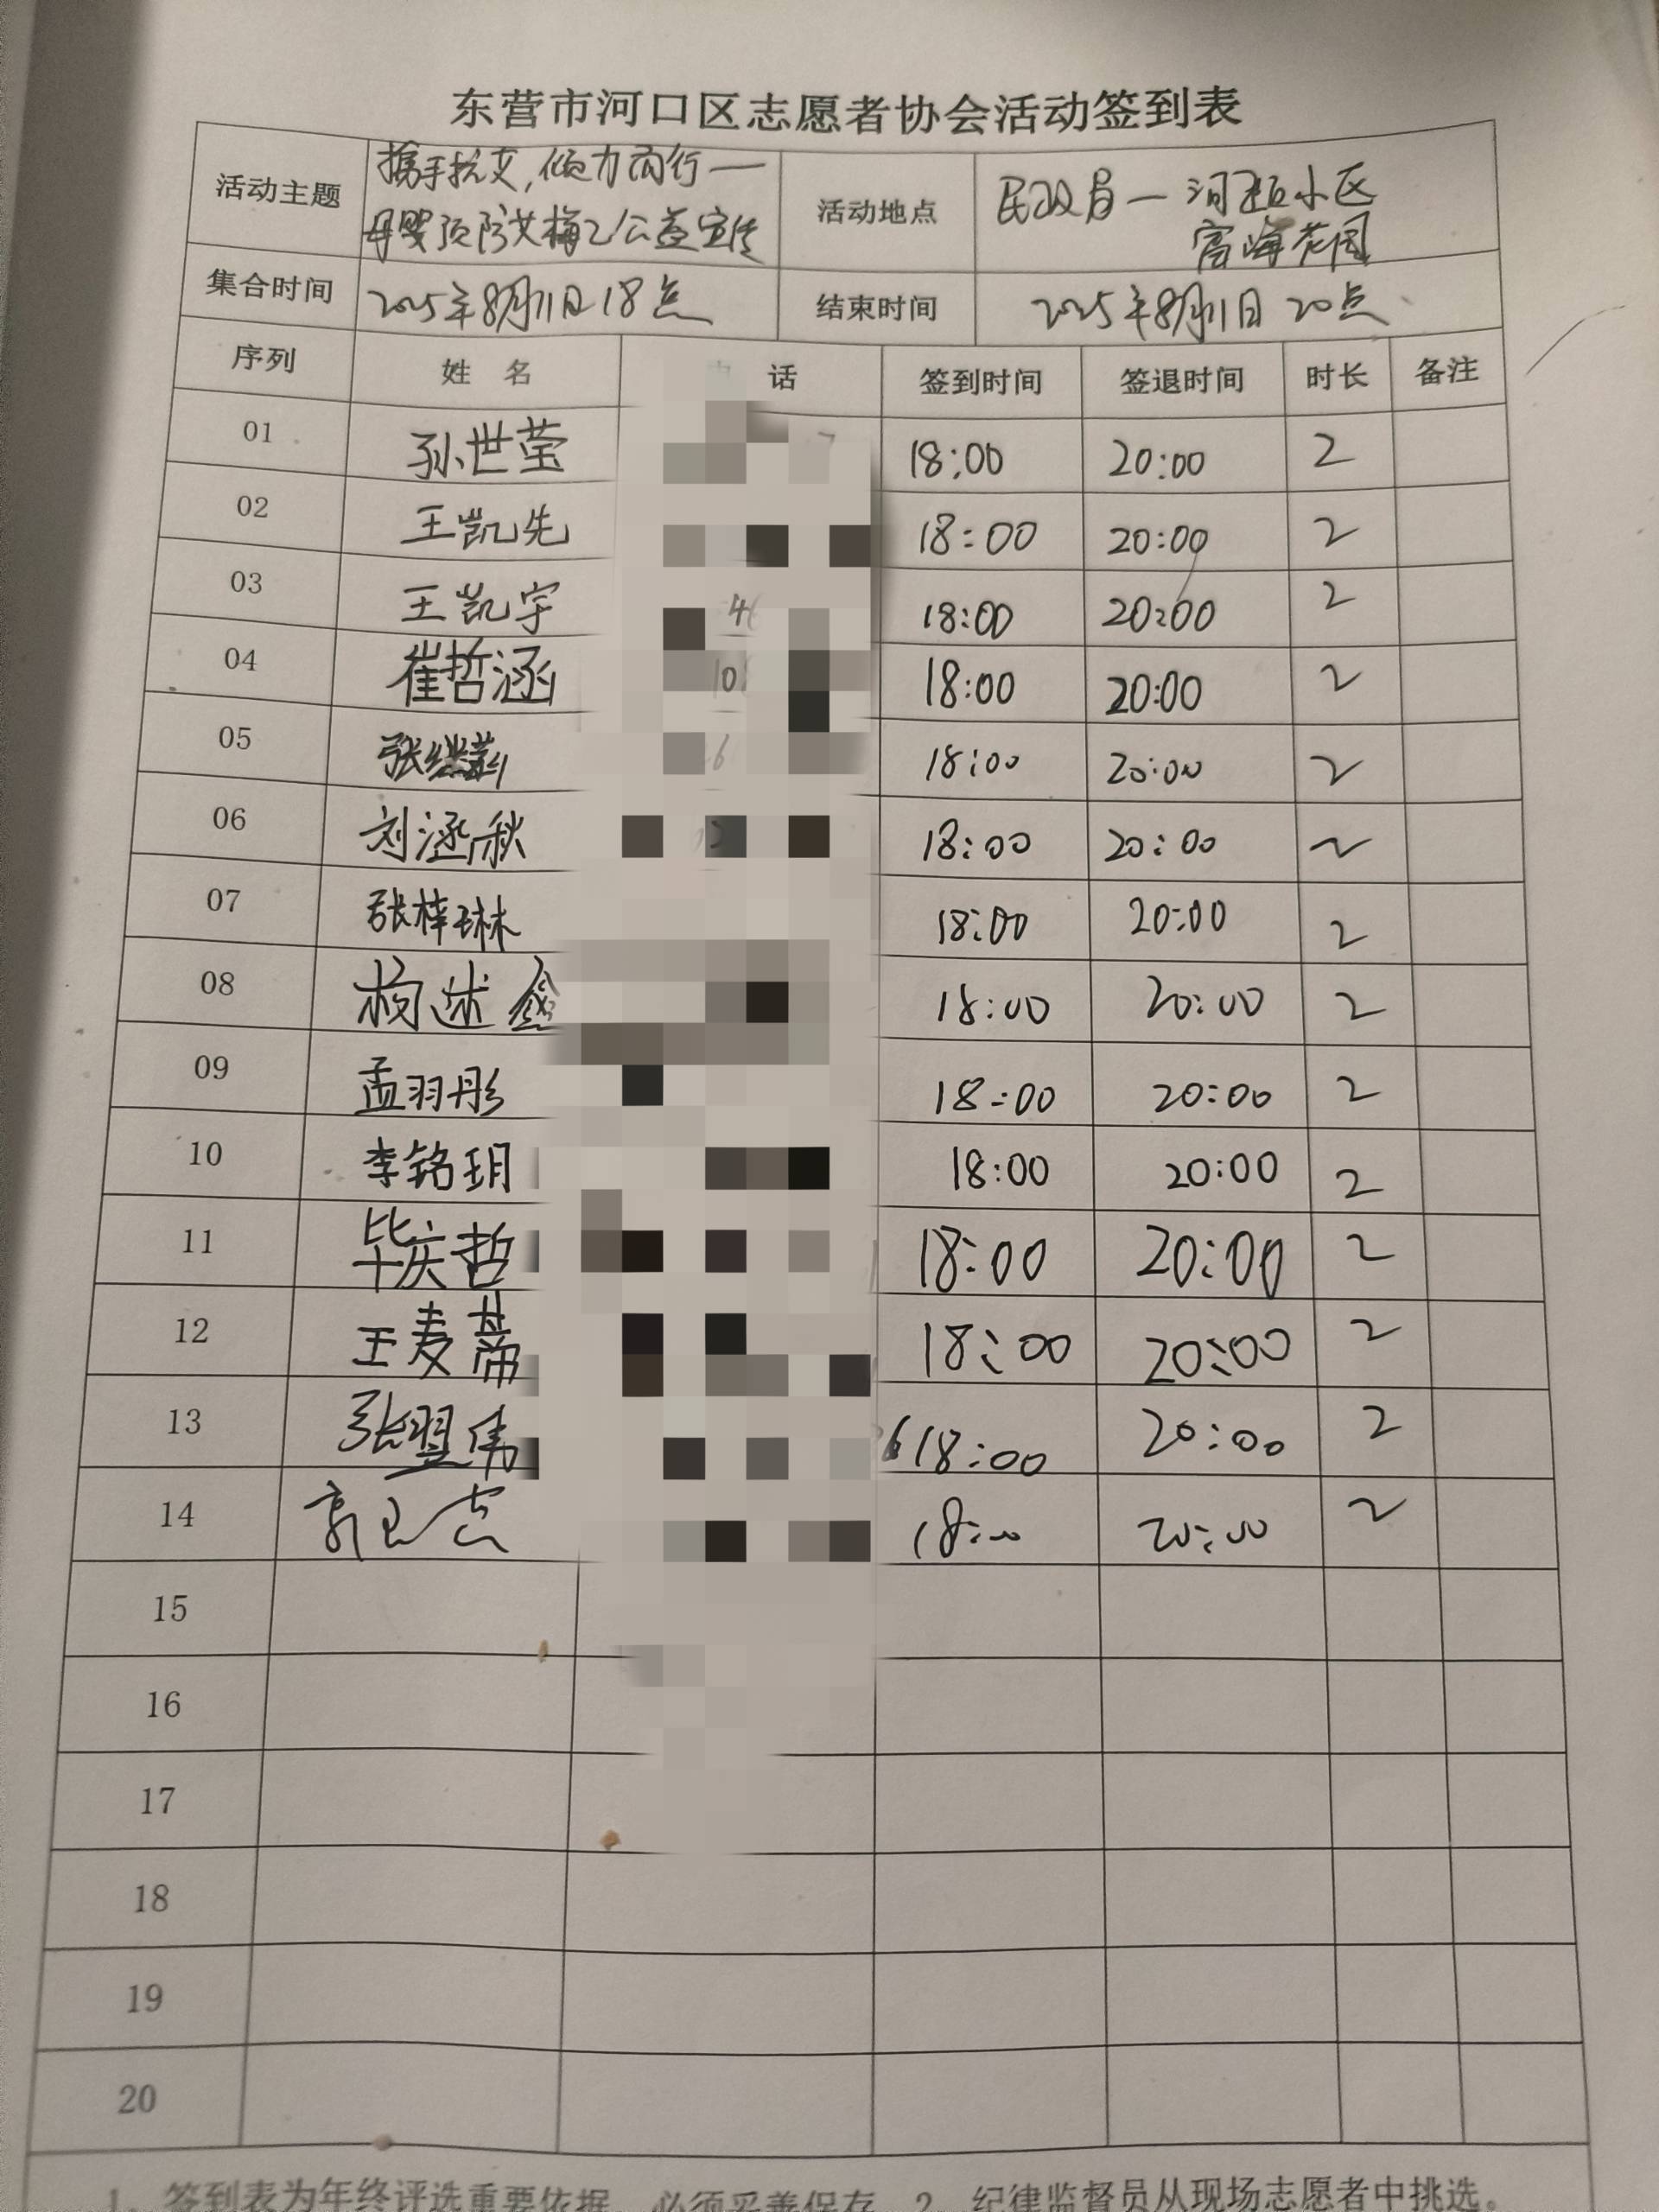 东营市河口区志愿者协会活动签到表
活动主题 携手抗艾,倾力前行— 活动地点 民政局—河 小区
母婴预防艾梅乙公益宣传 富海花园
集合时间 2025年8月11日18点 结束时间 2025年8月11日 20点
序列 姓 名 话 签到时间 签退时间 时长 备注
01 孙世莹 18:00 20:00 2
02 王凯先 18:00 20:00 2
03 王凯宇 18:00 20:00 2
04 崔哲涵 18:00 20:00 2
05 张继 18:00 20:00 2
06 刘涵秋 18:00 20:00 2
07 张梓琳 18:00 20:00 2
08 杨述鑫 18:00 20:00 2
09 孟羽彤 18:00 20:00 2
10 李铭玥 18:00 20:00 2
11 毕庆哲 18:00 20:00 2
12 王麦 18:00 20:00 2
13 张盟伟 6 18:00 20:00 2
14 18:00 20:00 2
15
16
17
18
19
20
1、签到表为年终评选重要依据,必须妥善保存 2、纪律监督员从现场志愿者中挑选。